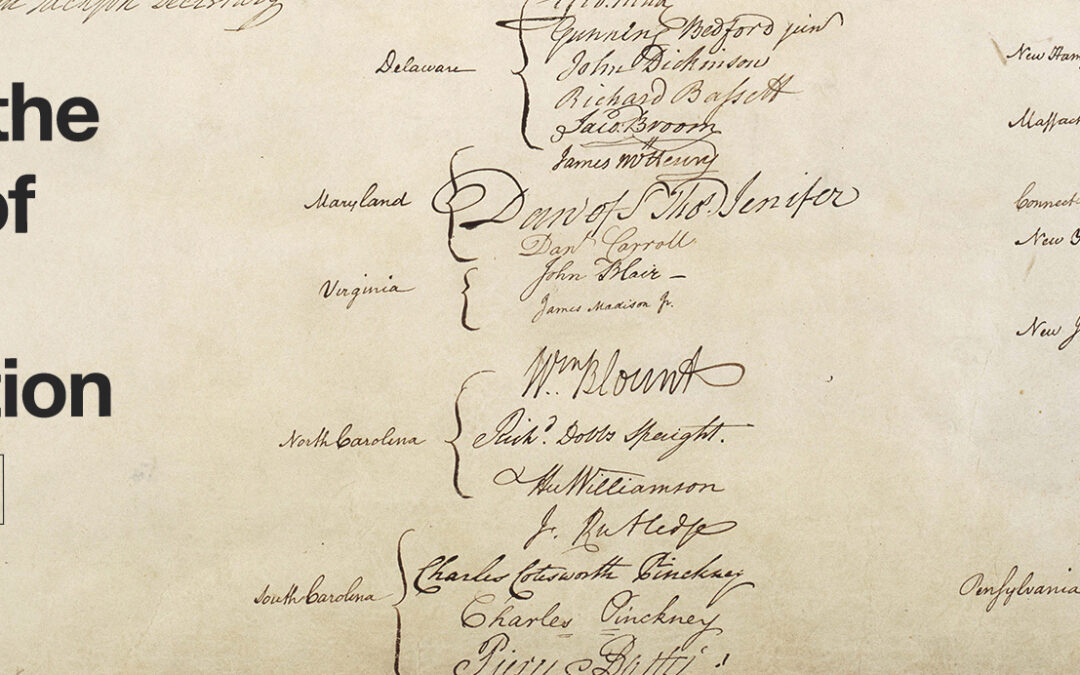 the
of
tion
Jackson Secretary
Delaware
Gunning Bedford jun
John Dickinson
Richard Bassett
Jaco: Broom
James McHenry
Maryland
Dan of St Thos. Jenifer
Danl Carroll
Virginia
John Blair –
James Madison Jr.
North Carolina
Wm. Blount
Richd. Dobbs Spaight.
Hu Williamson
South Carolina
J. Rutledge
Charles Cotesworth Pinckney
Charles Pinckney
Pierce Butler
New Ham
Massach
Connect
New
New J
Pensylvania